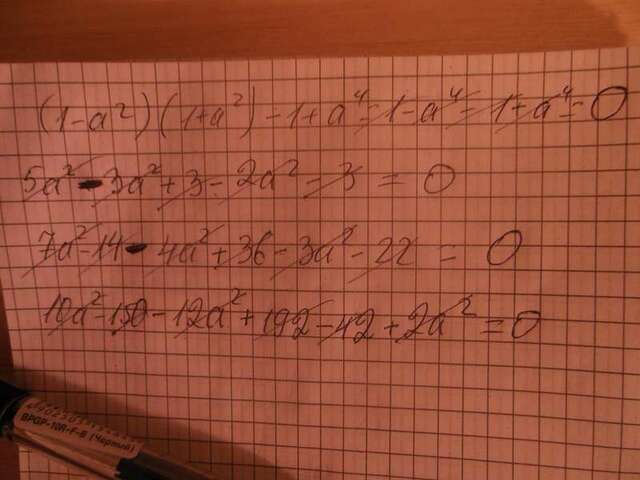 (1-a²)(1+a²)-1+a⁴=1-a⁴-1+a⁴=0
5a²-3a²+3-2a²-3=0
7a²-14-4a²+36-3a²-22=0
10a²-150-12a²+192-42+2a²=0
BPGP-10R-F-B (Черный)